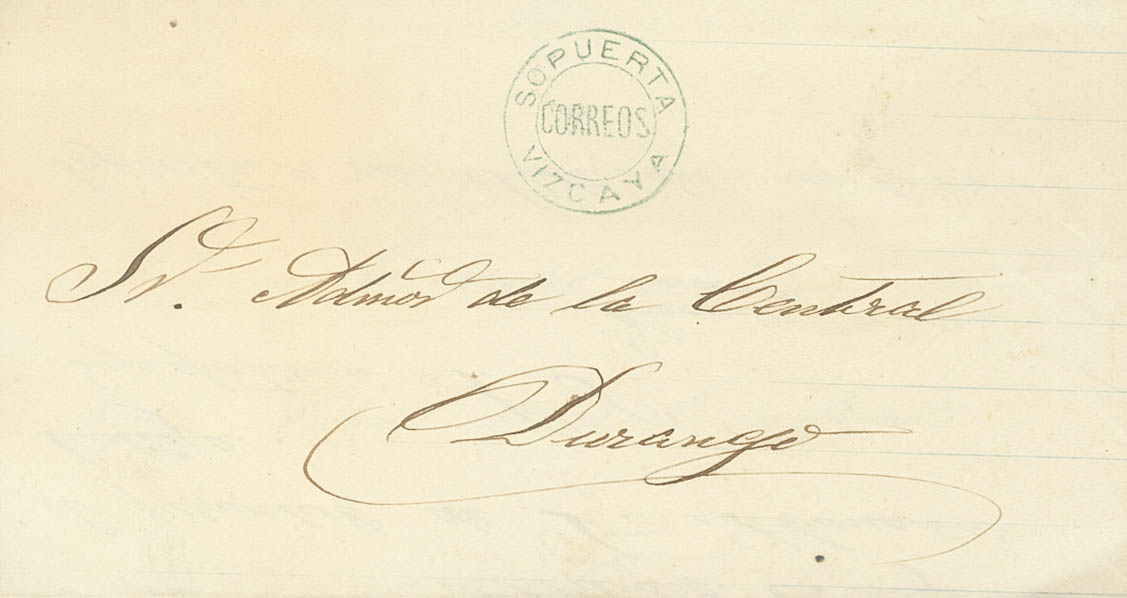 SOPUERTA
CORREOS
VIZCAYA
Sr. Admor de la Central
Durango